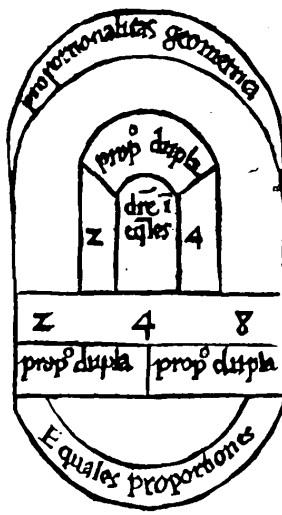 proportionalitas geometrica
propº dupla
dr̄e ī
eq̄les
2 4
2 4 8
propº dupla propº dupla
Equales proportiones